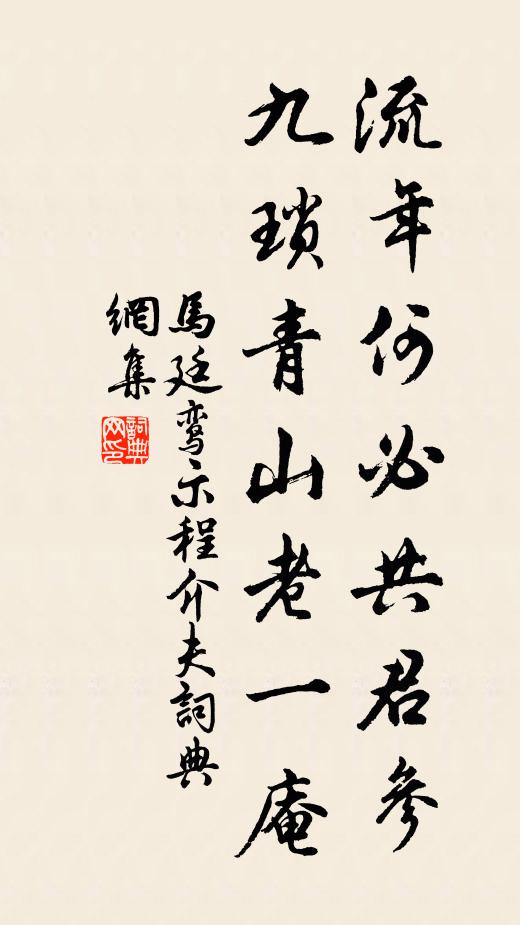 流年何必共君參
九瑣青山老一庵
馬廷鸞示程介夫詞典
網集
詞典
网印